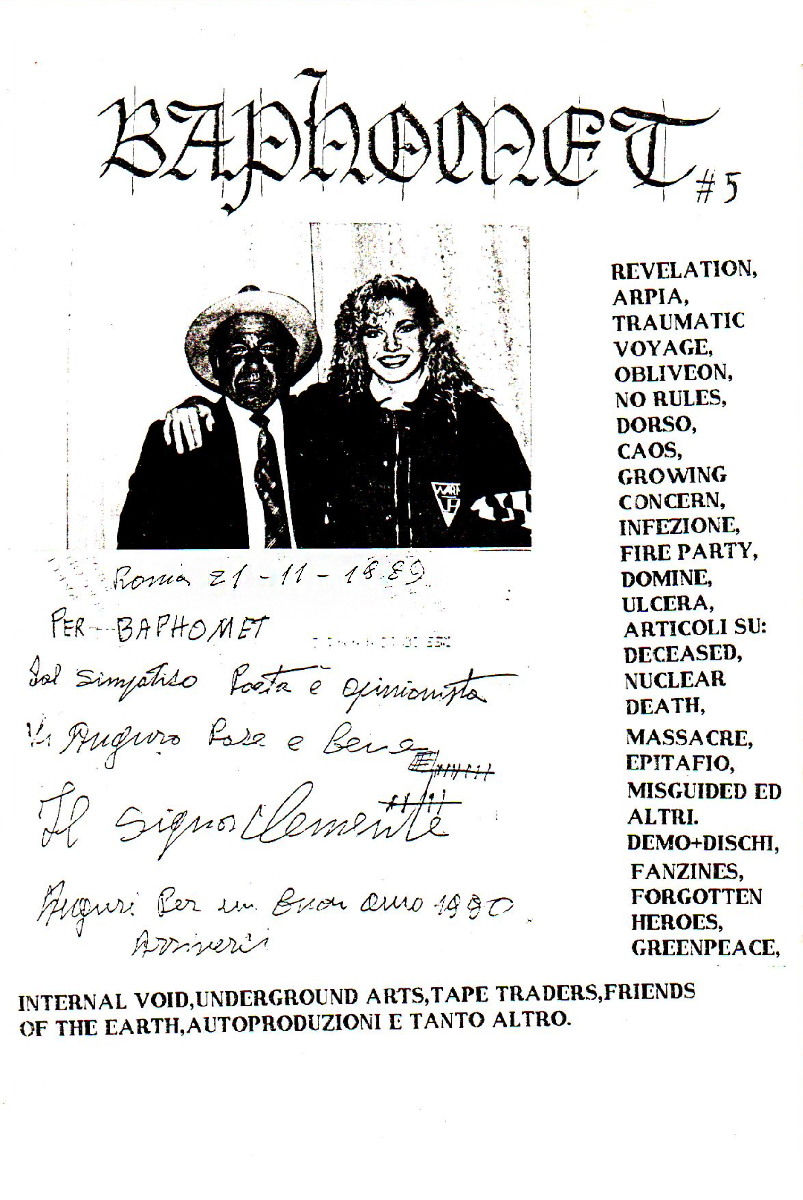 BAPHOMET #5
REVELATION,
ARPIA,
TRAUMATIC
VOYAGE,
OBLIVEON,
NO RULES,
DORSO,
CAOS,
GROWING
CONCERN,
INFEZIONE,
FIRE PARTY,
DOMINE,
ULCERA,
ARTICOLI SU:
DECEASED,
NUCLEAR
DEATH,
MASSACRE,
EPITAFIO,
MISGUIDED ED
ALTRI.
DEMO+DISCHI,
FANZINES,
FORGOTTEN
HEROES,
GREENPEACE,
Roma 21-11-1989
PER BAPHOMET
Dal Simpatiso Poeta e opinionista
Vi Auguro Pase e bene
Il Signor Clemente
Auguri Per un Buon anno 1990
Arriverci
INTERNAL VOID,UNDERGROUND ARTS,TAPE TRADERS,FRIENDS
OF THE EARTH,AUTOPRODUZIONI E TANTO ALTRO.